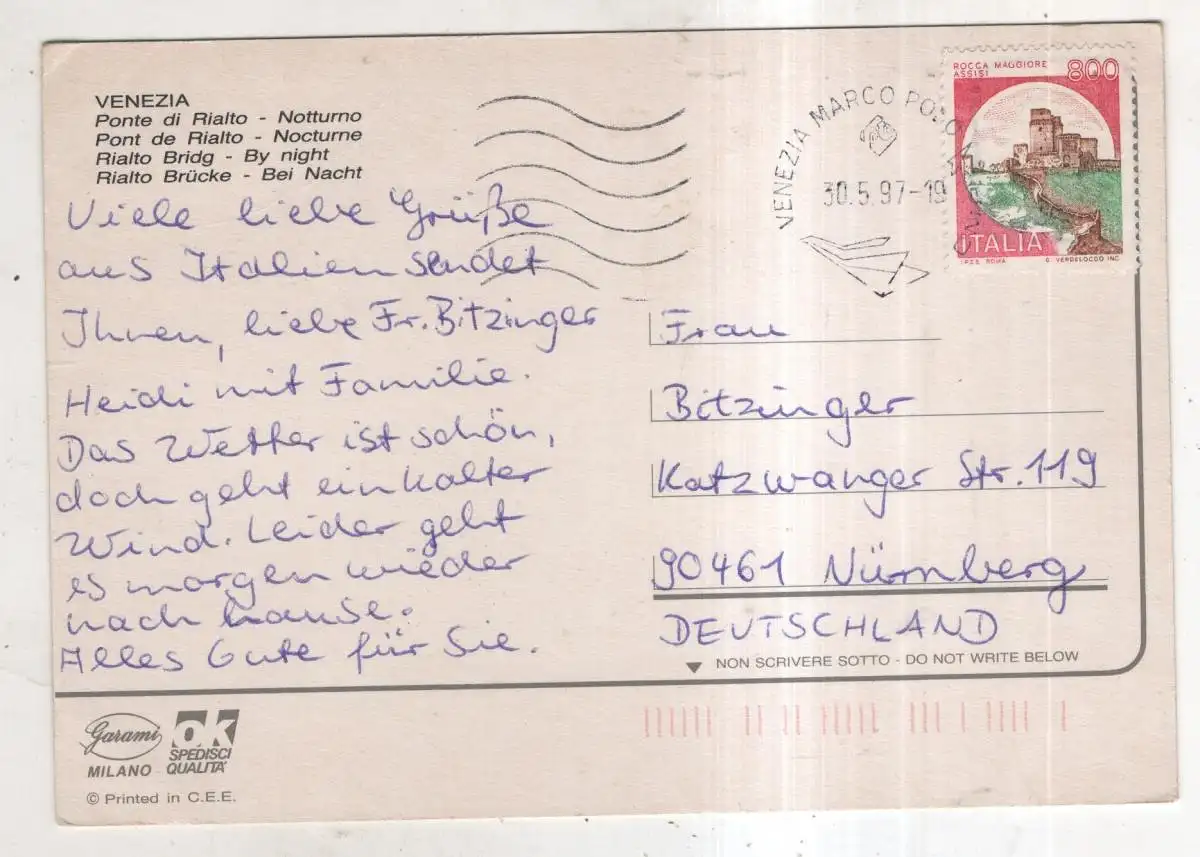 VENEZIA
Ponte di Rialto - Notturno
Pont de Rialto - Nocturne
Rialto Bridg - By night
Rialto Brücke - Bei Nacht
Viele liebe Grüße
aus Italien sendet
Ihnen, liebe Fr. Bitzinger
Heidi mit Familie.
Das Wetter ist schön,
doch geht ein kalter
Wind. Leider geht
es morgen wieder
nach hause.
Alles Gute für Sie.
VENEZIA MARCO POLO
30.5.97-19
ROCCA MAGGIORE
ASSISI
800
ITALIA
I.P.Z.S. ROMA
Frau
Bitzinger
Katzwanger Str. 119
90461 Nürnberg
DEUTSCHLAND
NON SCRIVERE SOTTO - DO NOT WRITE BELOW
Garami
MILANO
OK
SPEDISCI
QUALITA'
© Printed in C.E.E.